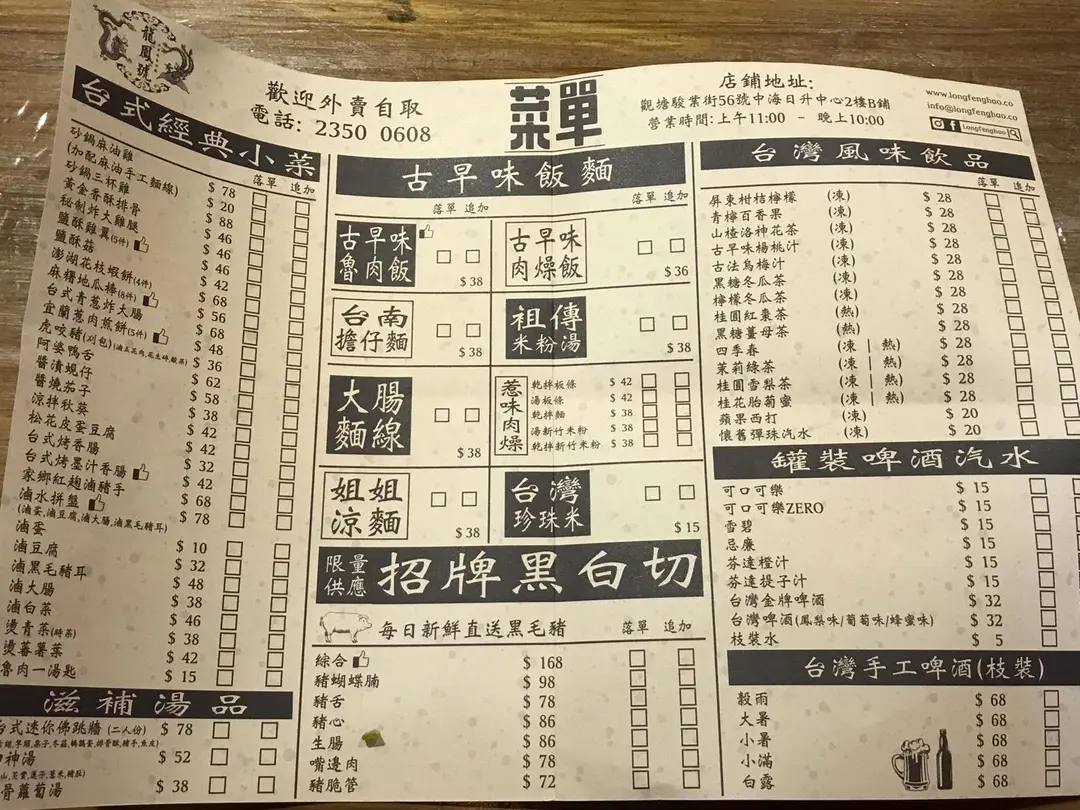 龍鳳號
歡迎外賣自取
電話: 2350 0608
菜單
店鋪地址:
觀塘駿業街56號中海日升中心2樓B鋪
營業時間:上午11:00 - 晚上10:00
www.longfenghao.co
info@longfenghao.co
Longfenghao
台式經典小菜
落單 追加
砂鍋麻油雞 $ 78
(加配麻油手工麵線) $ 20
砂鍋三杯雞 $ 88
黃金香酥排骨 $ 46
秘制炸大雞腿 $ 46
鹽酥雞翼(5件) $ 46
鹽酥菇 $ 42
澎湖花枝蝦餅(4件) $ 68
麻糬地瓜棒(8件) $ 56
台式青蔥炸大腸 $ 68
宜蘭蔥肉煎餅(5件) $ 48
虎咬豬(刈包)(滷五花肉,花生碎,酸菜) $ 36
阿婆鴨舌 $ 62
醬漬蜆仔 $ 58
醬燒茄子 $ 38
涼拌秋葵 $ 42
松花皮蛋豆腐 $ 42
台式烤香腸 $ 32
台式烤墨汁香腸 $ 42
家鄉紅麹滷豬手 $ 68
滷水拼盤 $ 78
(滷蛋,滷豆腐,滷大腸,滷黑毛豬耳)
滷蛋 $ 10
滷豆腐 $ 32
滷黑毛豬耳 $ 48
滷大腸 $ 38
滷白菜 $ 46
燙青菜(時菜) $ 38
燙蕃薯菜 $ 42
魯肉一湯匙 $ 15
滋補湯品
台式迷你佛跳牆 (二人份) $ 78
神湯 $ 52
骨蘿蔔湯 $ 38
古早味飯麵
落單 追加
落單 追加
古早味
魯肉飯
$ 38
古早味
肉燥飯
$ 36
台南
擔仔麵
$ 38
祖傳
米粉湯
$ 38
大腸
麵線
$ 38
惹味肉燥
乾拌板條 $ 42
湯板條 $ 42
乾拌麵 $ 38
湯新竹米粉 $ 38
乾拌新竹米粉 $ 38
姐姐
涼麵
$ 38
台灣
珍珠米
$ 15
限量供應 招牌黑白切
每日新鮮直送黑毛豬
落單 追加
綜合 $ 168
豬蝴蝶腩 $ 98
豬舌 $ 78
豬心 $ 86
生腸 $ 86
嘴邊肉 $ 78
豬脆管 $ 72
台灣風味飲品
落單 追加
屏東柑桔檸檬 (凍) $ 28
青檸百香果 (凍) $ 28
山楂洛神花茶 (凍) $ 28
古早味楊桃汁 (凍) $ 28
古法烏梅汁 (凍) $ 28
黑糖冬瓜茶 (凍) $ 28
檸檬冬瓜茶 (凍) $ 28
桂圓紅棗茶 (熱) $ 28
黑糖薑母茶 (熱) $ 28
四季春 (凍 | 熱) $ 28
茉莉綠茶 (凍 | 熱) $ 28
桂圓雪梨茶 (凍 | 熱) $ 28
桂花胎菊蜜 (凍 | 熱) $ 28
蘋果西打 (凍) $ 20
懷舊彈珠汽水 (凍) $ 20
罐裝啤酒汽水
可口可樂 $ 15
可口可樂ZERO $ 15
雪碧 $ 15
忌廉 $ 15
芬達橙汁 $ 15
芬達提子汁 $ 15
台灣金牌啤酒 $ 32
台灣啤酒(鳳梨味/葡萄味/蜂蜜味) $ 32
枝裝水 $ 5
台灣手工啤酒(枝裝)
穀雨 $ 68
大暑 $ 68
小暑 $ 68
小滿 $ 68
白露 $ 68